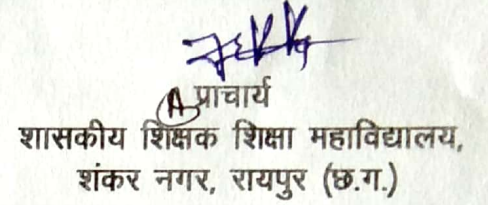 (A) प्राचार्य
शासकीय शिक्षक शिक्षा महाविद्यालय,
शंकर नगर, रायपुर (छ.ग.)